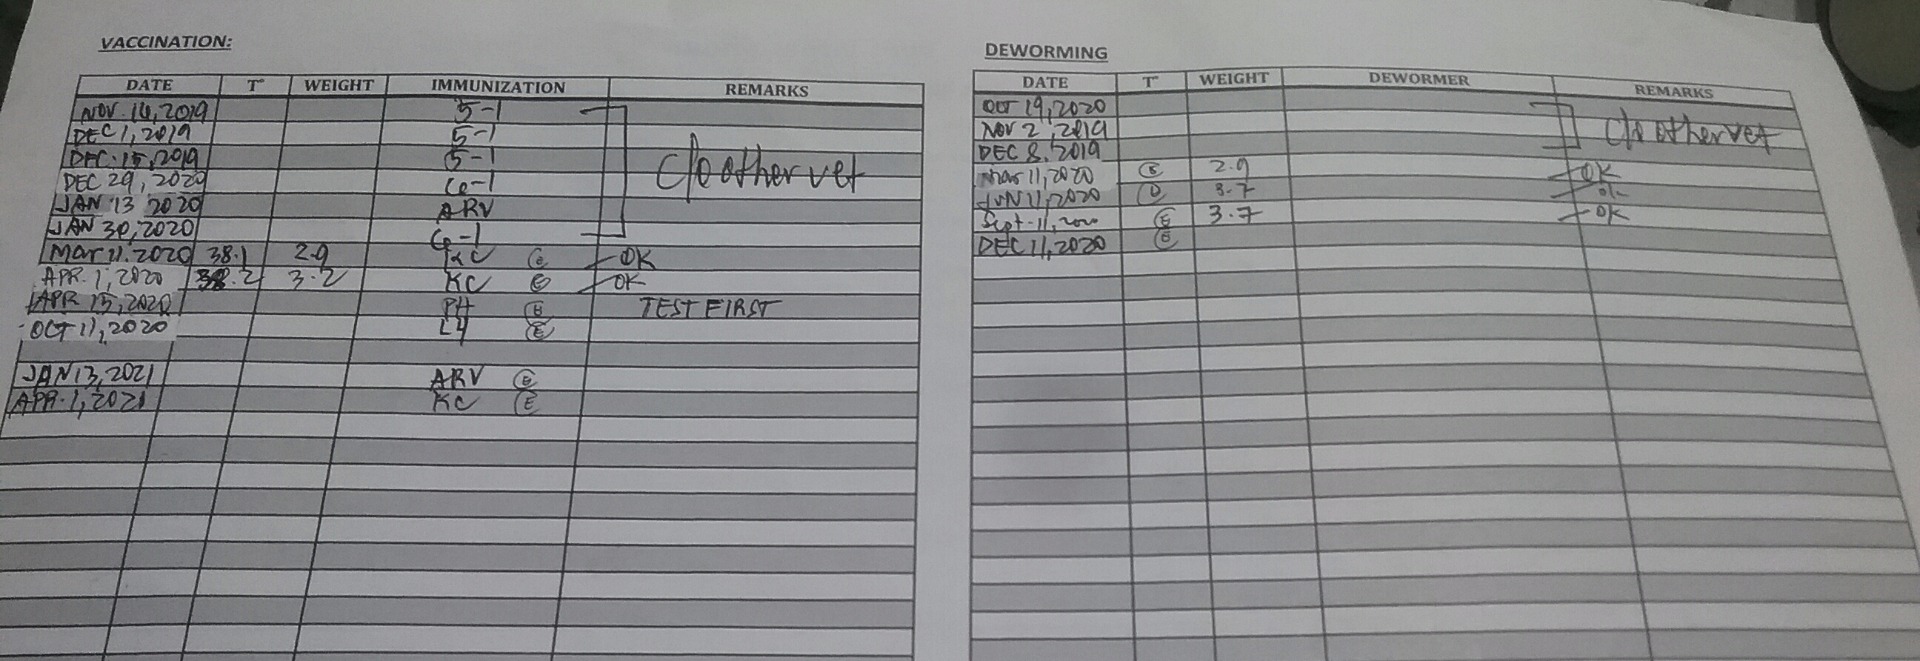 VACCINATION:
DATE T° WEIGHT IMMUNIZATION REMARKS
NOV. 16, 2019 5-1
DEC 1, 2019 5-1
DEC. 15, 2019 5-1 c/o other vet
DEC 29, 2020 6-1
JAN 13 2020 ARV
JAN 30, 2020 6-1
Mar 11. 2020 38.1 2.9 KC E OK
APR. 1, 2020 38.2 3.2 KC E OK
APR 15, 2020 PH E TEST FIRST
OCT 11, 2020 L4 E
JAN 13, 2021 ARV E
APR. 1, 2021 KC E
DEWORMING
DATE T° WEIGHT DEWORMER REMARKS
OCT 19, 2020
NOV 2, 2019 c/o other vet
DEC 8. 2019
Mar 11, 2020 E 2.9 OK
JUN 11, 2020 D 3.7 OK
Sept. 11, 2020 E 3.7 OK
DEC 11, 2020 E